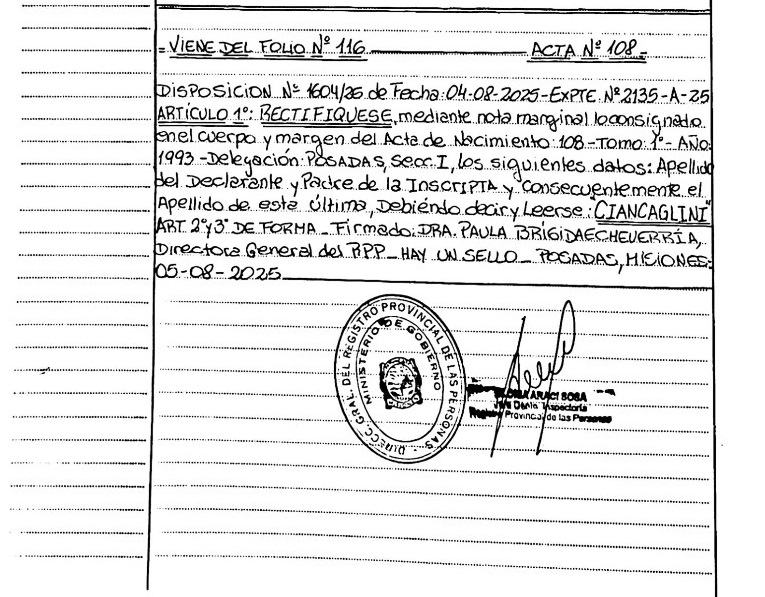 = VIENE DEL FOLIO Nº 116 ACTA Nº 108 =
DISPOSICION Nº 1604/25 de Fecha: 04-08-2025 - EXPTE. Nº 2135-A-25
ARTÍCULO 1º: RECTIFIQUESE, mediante nota marginal lo consignado
en el cuerpo y margen del Acta de Nacimiento: 108 - Tomo: 1º - AÑO:
1993 - Delegación: POSADAS, Secc. I, los siguientes datos: Apellido
del Declarante y Padre de la INSCRIPTA y consecuentemente el
Apellido de esta última, Debiéndo decir y Leerse: CIANCAGLINI"
ART. 2º y 3º DE FORMA _ Firmado: DRA. PAULA BRIGIDA ECHEVERRÍA,
Directora General del RPP _ HAY UN SELLO _ POSADAS, MISIONES:
05-08-2025
DIRECC. GRAL. DEL REGISTRO PROVINCIAL DE LAS PERSONAS -
MINISTERIO DE GOBIERNO
ARACI SOSA
Inspectoria
Registro Provincial de las Personas